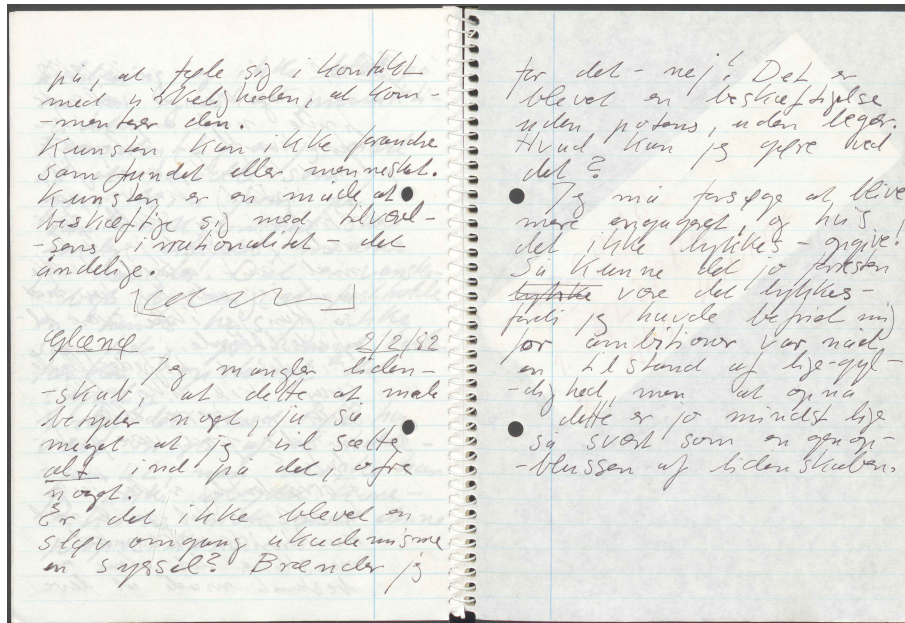 på, at føle sig i kontakt
med virkeligheden, at kom-
-menterer den.
Kunsten kan ikke forandre
samfundet eller mennesket.
Kunsten er en måde at
beskæftige sig med tilvæl-
-sens irrationalitet - det
åndelige.
Glænø 2/2/92
Jeg mangler liden-
-skab, at dette at male
betyder noget, ja så
meget at jeg vil sætte
alt ind på det, ofre
noget.
Er det ikke blevet en
sløv omgang akademisme
en syssel? Brænder jeg
for det - nej! Det er
blevet en beskæftigelse
uden potens, uden leger.
Hvad kan jeg gøre ved
det?
Jeg må forsøge at blive
mere engageret, og hvis
det ikke lykkes - opgive!
Så kunne det jo forresten
lykke være det lykkes-
fordi jeg havde befriet mig
for ambitioner var nået
en tilstand af lige-gyl-
-dighed men at opnå
dette er jo mindst lige
så svært som en genop-
-blussen af lidenskaben.